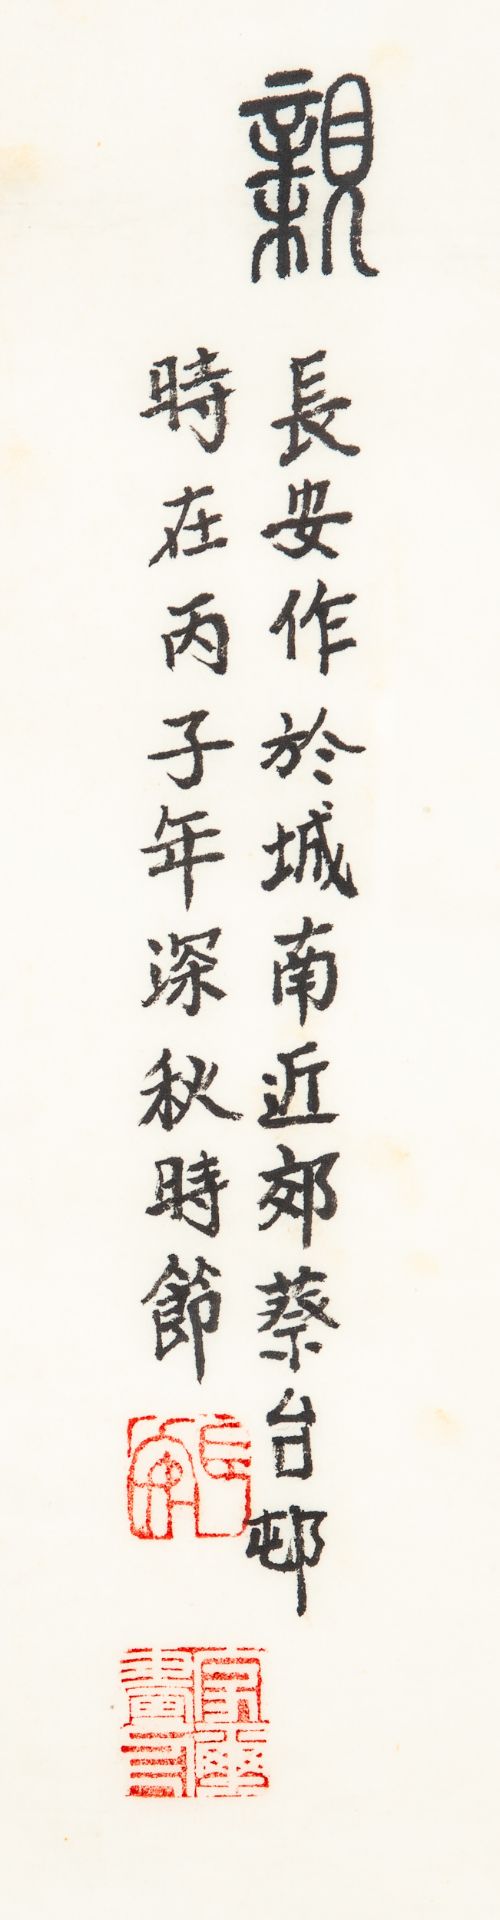 親
長安作於城南近郊蔡台邨
時在丙子年深秋時節
長安